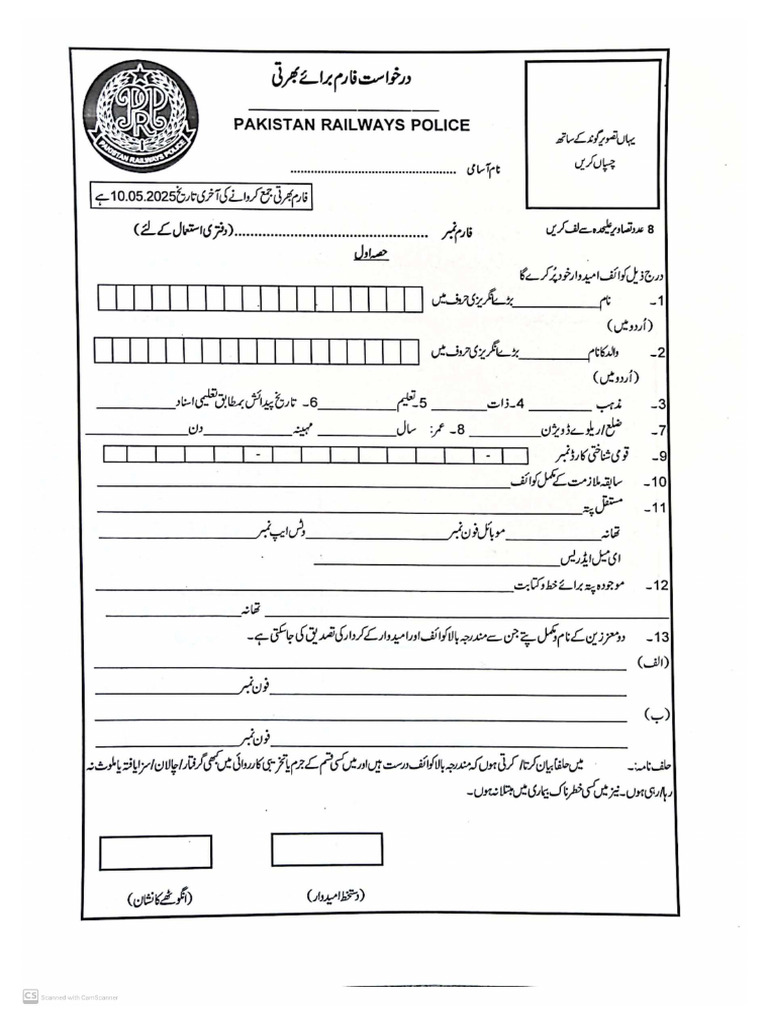 درخواست فارم برائے بھرتی
PAKISTAN RAILWAYS POLICE
PRP
PAKISTAN RAILWAYS POLICE
یہاں تصویر گوند کے ساتھ
چسپاں کریں
نام آسامی ................................................
فارم بھرتی جمع کروانے کی آخری تاریخ 10.05.2025 ہے
8 عدد تصاویر علیحدہ سے لف کریں
فارم نمبر ................................................(دفتری استعمال کے لئے)
حصہ اول
درج ذیل کوائف امیدوار خود پُر کرے گا
1۔ نام____________ بڑے انگریزی حروف میں
(اُردو میں)
2۔ والد کا نام____________ بڑے انگریزی حروف میں
(اُردو میں)
3۔ مذہب ________ 4۔ ذات ________ 5۔ تعلیم ________ 6۔ تاریخ پیدائش بمطابق تعلیمی اسناد ________
7۔ ضلع/ریلوے ڈویژن ________ 8۔ عمر: سال ________ مہینہ ________ دن ________
9۔ قومی شناختی کارڈ نمبر - -
10۔ سابقہ ملازمت کے مکمل کوائف ________
11۔ مستقل پتہ ________
تھانہ ________ موبائل فون نمبر ________ وٹس ایپ نمبر ________
ای میل ایڈریس ________
12۔ موجودہ پتہ برائے خط و کتابت ________
________ تھانہ ________
13۔ دو معززین کے نام و مکمل پتے جن سے مندرجہ بالا کوائف اور امیدوار کے کردار کی تصدیق کی جا سکتی ہے۔
(الف) ________
________ فون نمبر ________
(ب) ________
________ فون نمبر ________
حلف نامہ:۔ میں حلفاً بیان کرتا/کرتی ہوں کہ مندرجہ بالا کوائف درست ہیں اور میں کسی قسم کے جرم یا تخریبی کارروائی میں کبھی گرفتار/چالان/سزا یافتہ یا ملوث نہ
رہا/رہی ہوں۔ نیز میں کسی خطرناک بیماری میں مبتلا نہ ہوں۔
(دستخط امیدوار) (انگوٹھے کا نشان)
CS Scanned with CamScanner